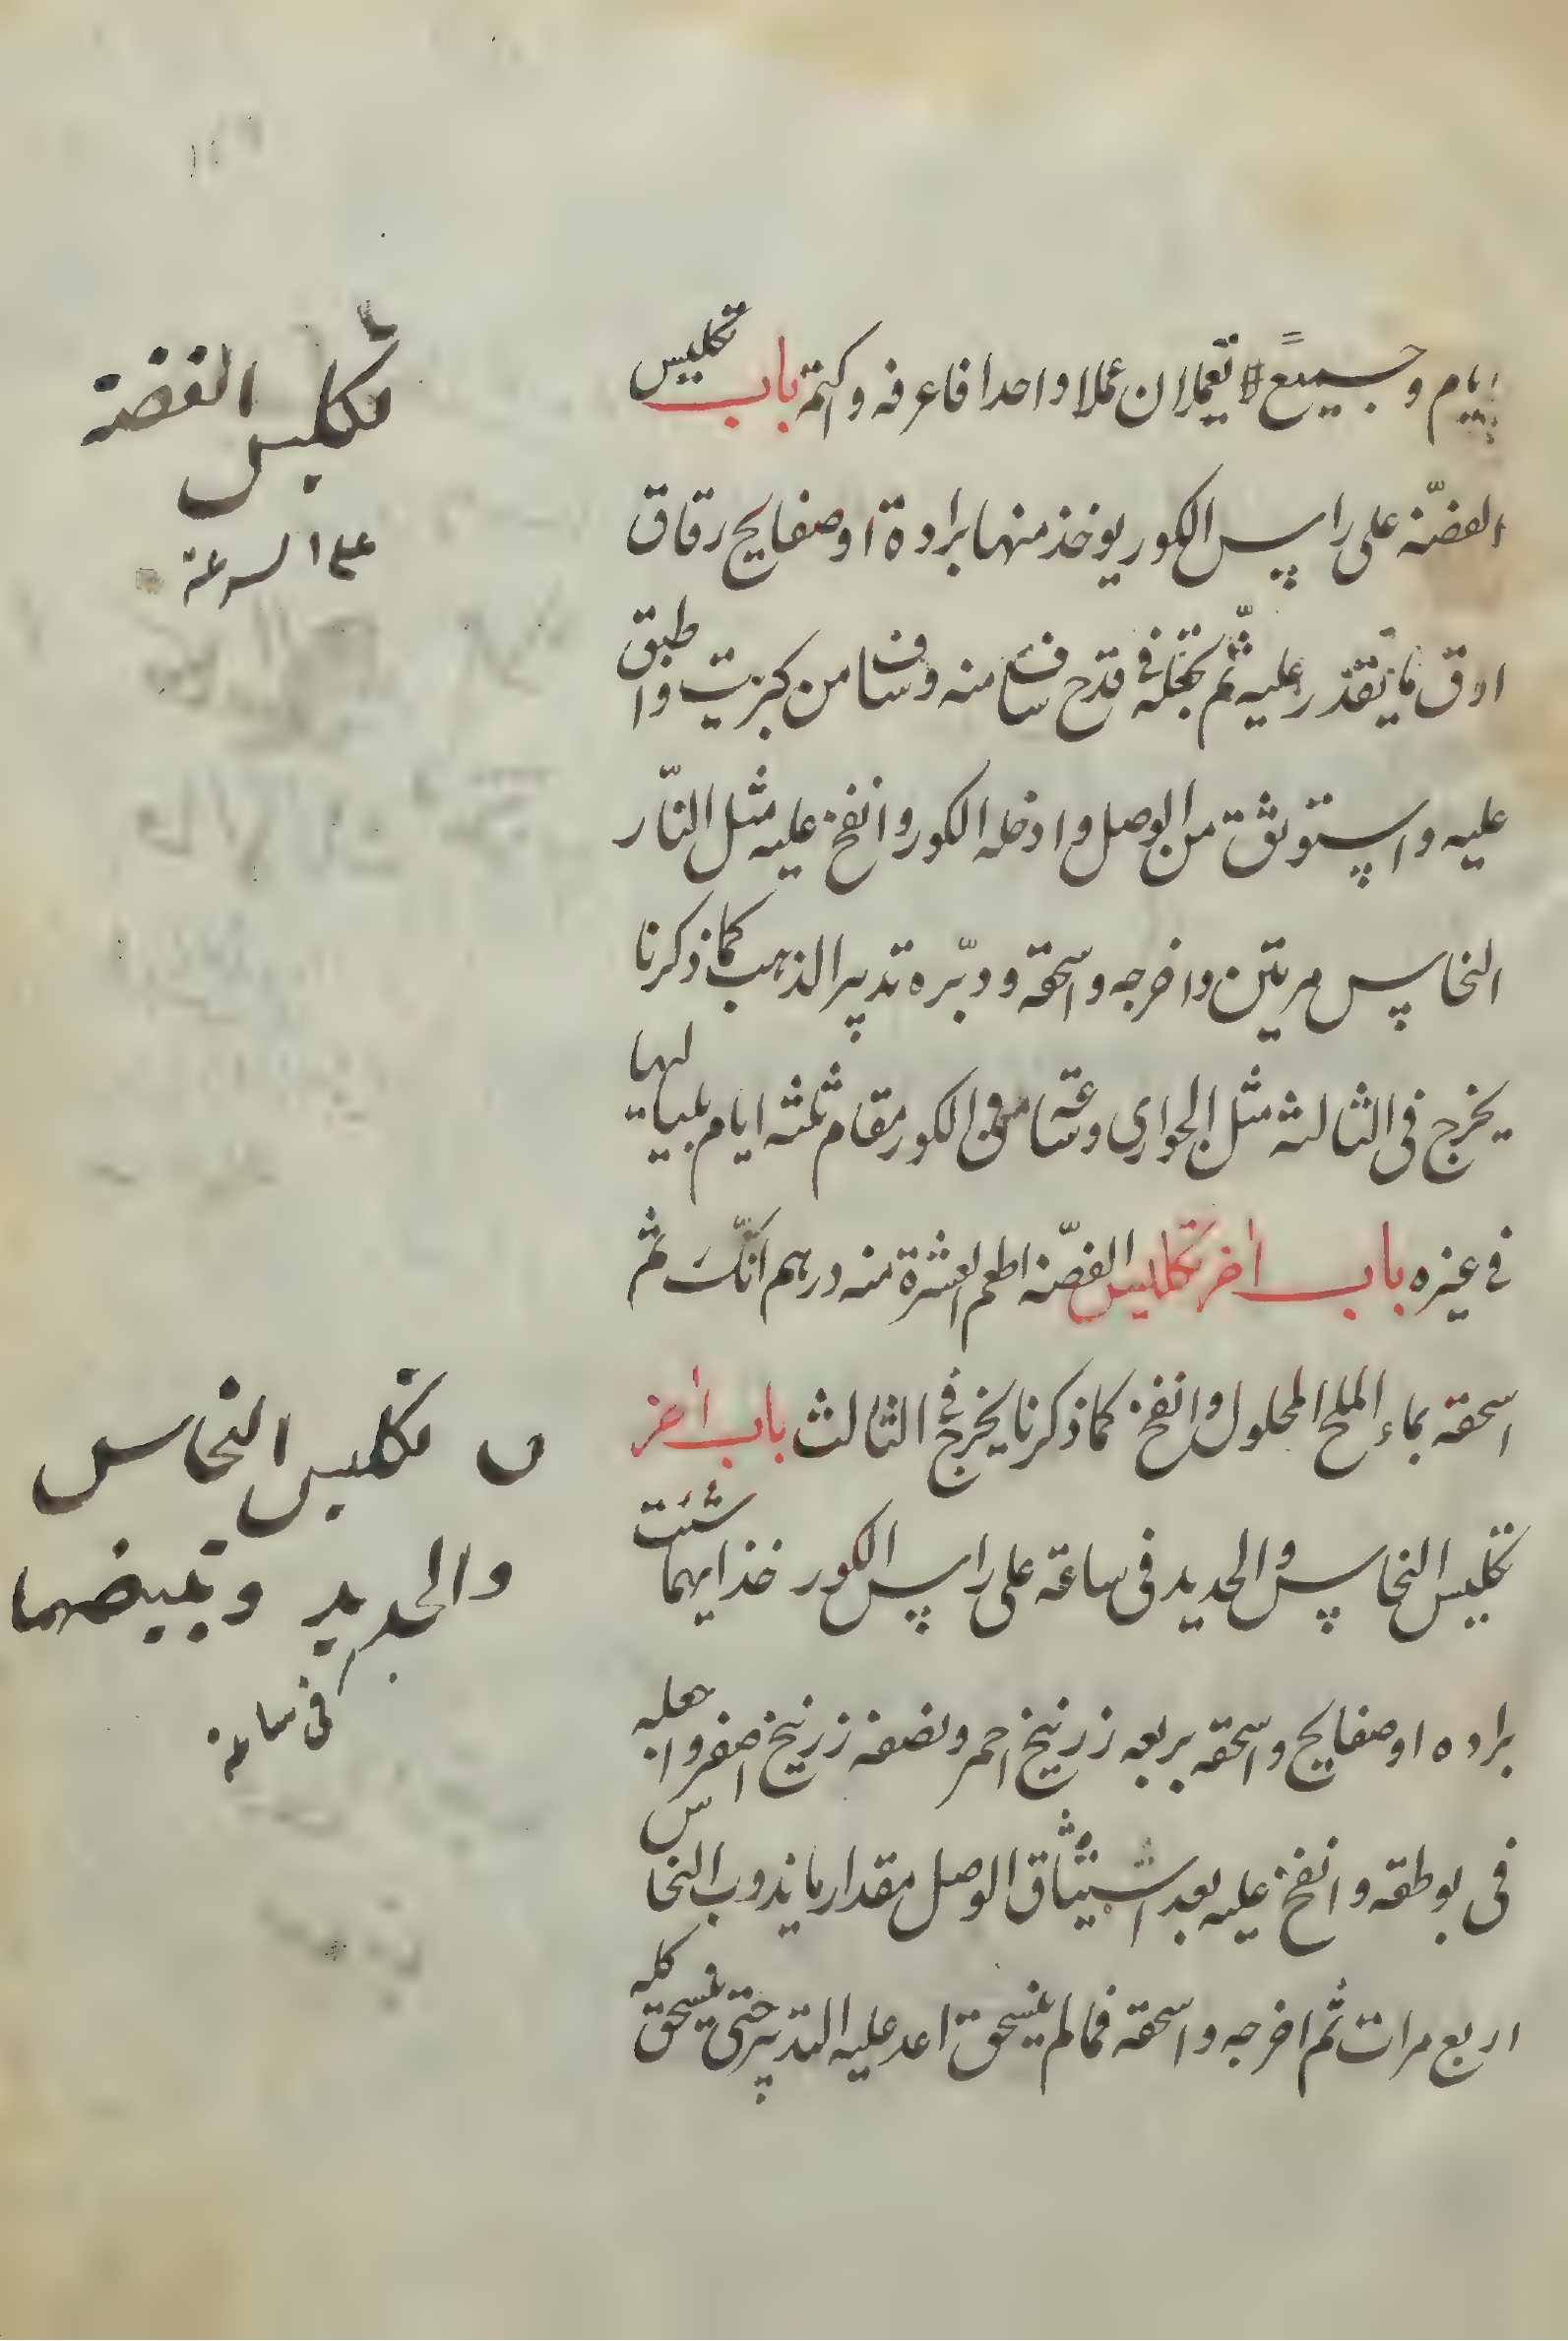 ايام وجميعا يعملان عملا واحدا فاعرفه واكتمه باب تكليس
الفضّة على راس الكور يوخذ منها برادة او صفايح رقاق
ارق ما تقدر عليه ثمّ تجعله فى قدح ساف منه وساف من كبريت واطبق
عليه واستوثق من الوصل وادخله الكور وانفخ عليه مثل النّار
النحاس مرتين واخرجه واسحقه ودبّره تدبير الذهب كما ذكرنا
يخرج فى الثالثة مثل الحوارى وساعة فى الكور مقام ثلثه ايام بلياليها
فى غيره باب اخر تكليس الفضّة اطعم العشرة منه درهم انّك ثم
اسحقه بماء الملح المحلول وانفخ كما ذكرنا يخرج فى الثالث باب اخر
تكليس النحاس والحديد فى ساعة على راس الكور خذ ايهما شئت
براده او صفايح واسحقه بربعه زرنيخ احمر ونصفه زرنيخ اصفر واجعله
فى بوطقه وانفخ عليه بعد استيثاق الوصل مقدار ما يذوب النحاس
اربع مرات ثم اخرجه واسحقه فما لم ينسحق اعد عليه التدبير حتى ينسحق كله
تكليس الفضة
على السرعة
ں تكليس النحاس
والحديد وتبييضهما
فى ساعة